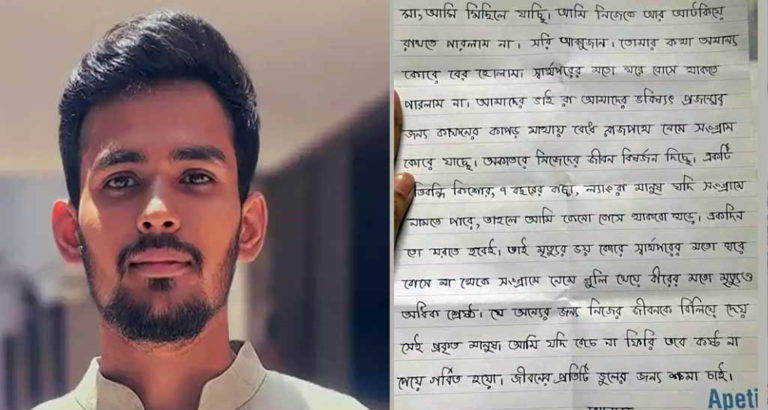 মা, আমি মিছিলে যাচ্ছি। আমি নিজেকে আর আটকিয়ে
রাখতে পারলাম না। সরি আব্বুজান। তোমার কথা অমান্য
কোরে বের হোলাম। স্বার্থপরের মতো ঘরে বোসে থাকতে
পারলাম না। আমাদের ভাই রা আমাদের ভবিষ্যৎ প্রজন্মের
জন্য কাফনের কাপড় মাথায় বেধে রাজপথে নেমে সংগ্রাম
কোরে যাচ্ছে। অকাতরে নিজেদের জীবন বিষর্জন দিচ্ছে। একটি
তিবন্ধি কিশোর, ৭ বছরের বাচ্চা, ল্যাংরা মানুষ যদি সংগ্রামে
নামতে পারে, তাহলে আমি কেনো বোসে থাকবো ঘড়ে। একদিন
তো মরতে হবেই। তাই মৃত্যুর ভয় কোরে স্বার্থপরের মতো ঘরে
বোসে না থেকে সংগ্রামে নেমে গুলি খেয়ে বীরের মতো মৃত্যুও
অধিক শ্রেষ্ঠ। যে অন্যের জন্য নিজের জীবনকে বিলিয়ে দেয়
সেই প্রকৃত মানুষ। আমি যদি বেচে না ফিরি তবে কষ্ট না
পেয়ে গর্বিত হয়ো। জীবনের প্রতিটি ভুলের জন্য ক্ষমা চাই।
Apeti